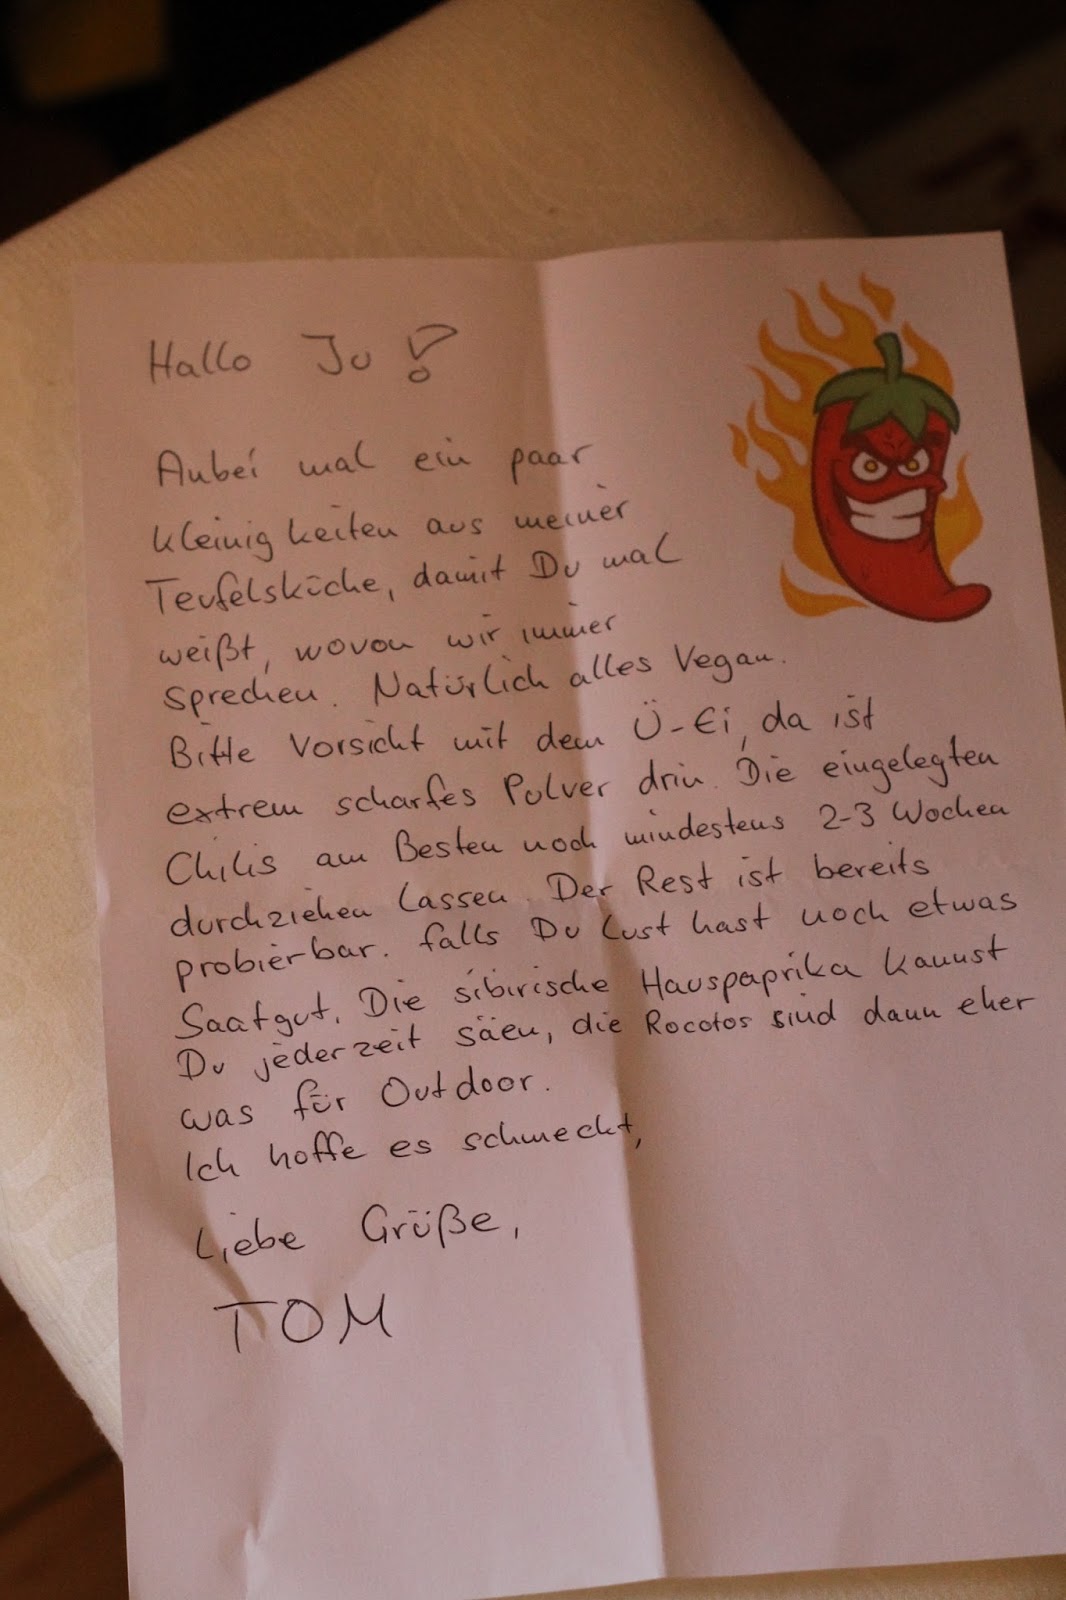 Hallo Ju!
Anbei mal ein paar
kleinigkeiten aus meiner
Teufelsküche, damit Du mal
weißt, wovon wir immer
sprechen. Natürlich alles Vegan.
Bitte Vorsicht mit dem Ü-Ei, da ist
extrem scharfes Pulver drin. Die eingelegten
Chilis am Besten noch mindestens 2-3 Wochen
durchziehen lassen. Der Rest ist bereits
probierbar. falls Du Lust hast noch etwas
Saatgut. Die sibirische Hauspaprika kannst
Du jederzeit säen, die Rocotos sind dann eher
was für Outdoor.
Ich hoffe es schmeckt,
Liebe Grüße,
TOM